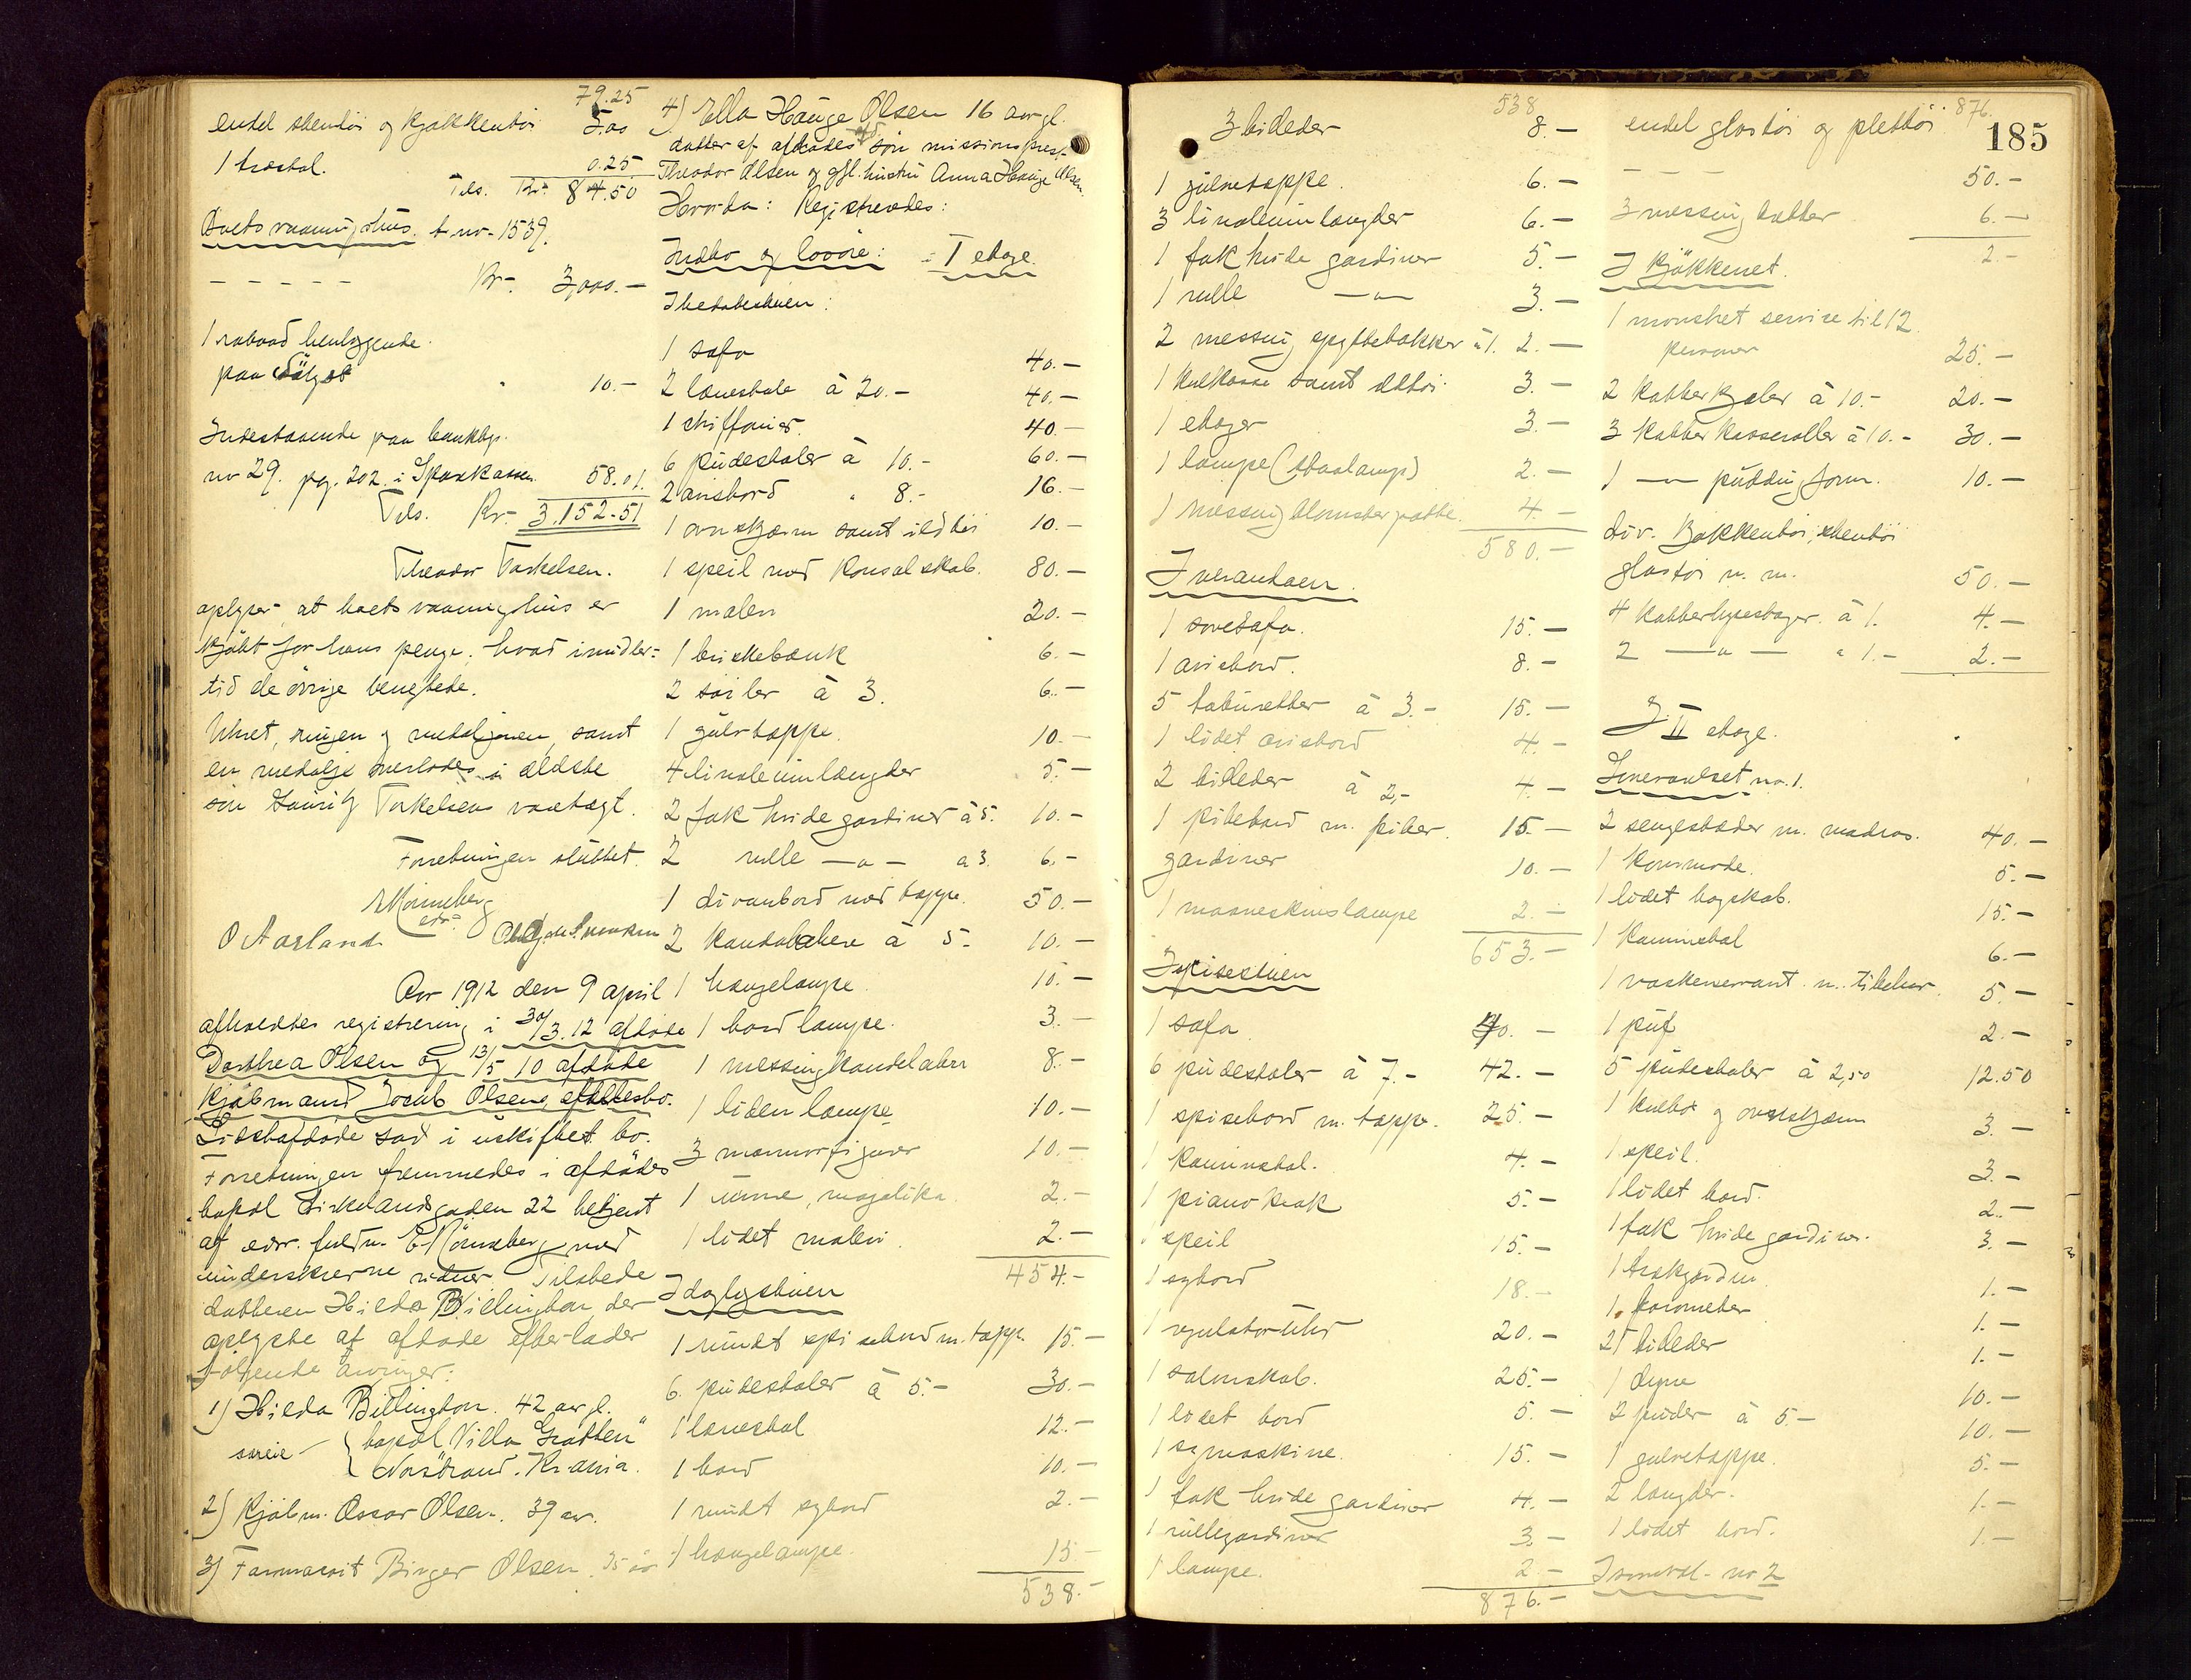 79.25
endel stentöi og kjøkkentöi 5.00
1 træstol. 0.25
Tils. Kr. 84.50
Boets vaaningshus. br no. 1539.
- - - - - Kr. 3,000.-
1 robaad henliggende
paa Sölyst " 10.-
Indestaaende paa bankbg.
no 29. pg. 202. i Sparekassen 58.01
Tils. Kr. 3.152.51
Theodor Torkelsen.
oplyser at boets vaaningshus er
kjöbt for hans penge. hvad imidler=
tid de övrige benegtede.
Uhret, ringen og medaljonen, samt
en medalje overlodes i ældste
sön Lauritz Torkelsens varetægt.
Forretningen sluttet.
E Mönneberg
edr=
O Aarland
Aar 1912 den 9 april
afholdtes registrering i 30/3.12 afdöde
Dorthea Olsen og 13/5 10 afdöde
kjöbmand Jacob Olsens efterl. bo.
Sidstafdöde sad i uskiftet bo.
Forretningen fremmedes i afdödes
bopæl Birkelandsgaden 22 betjent
af edsv. fuldm. E Mönneberg med
underskrevne vidner Tilstede
datteren Hilda Billington der
oplyste at afdöde efterlader
fölgende arvinger:
1) Hilda Billington. 42 aar gl.
bopæl Villa "Grotten"
Nordstrand. Kr.ania.
2) Kjöbm. Oscar Olsen. 39 aar.
3) Farmaceit Birger Olsen. 35 aar
4) Ella Hauge Olsen 16 aar gl.
datter af afdödes afd. sön missionsprest
Theodor Olsen og gjl. hustru Anna Hauge Olsen
Hvorda: Registreredes:
Indbo og lösöre: I etage
I bedstestuen:
1 sofa 40.-
2 lænestole à 20.- 40.-
1 chiffonier. 40.-
6 pudestoler à 10.- 60.-
2 avisbord " 8.- 16.-
1 ovnskjærm samt ildtöi 10.-
1 speil med konsolskab. 80.-
1 maleri 20.-
1 briskebænk 6.-
2 söiler à 3. 6.-
1 gulvtæppe. 10.-
4 linoleumlængder 5.-
2 fak hvide gardiner à 5. 10.-
2 rulle - " - a 3. 6.-
1 divanbord med tæppe. 50.-
2 kandelabere à 5.- 10.-
1 hængelampe. 10.-
1 bordlampe. 3.-
1 messingkandelaber 8.-
1 liden lampe 10.-
3 marmorfigurer 10.-
1 urne, majolika. 2.-
1 lidet maleri. 2.-
454.-
I dagligstuen
1 rundt spisebord m. tæppe 15.-
6. pudestoler à 5.- 30.-
1 lænestol 12.-
1 bord 10.-
1 rundt sybord 2.-
1 hængelampe. 15.-
538.-
538.
3 bileder 8.-
1 gulvetæppe. 6.-
3 linoleumlængder 6.-
1 fak hvide gardiner 5.-
1 rulle - " - 3.-
2 messing spyttebakker à 1. 2.-
1 kulkasse samt ildtöi. 3.-
1 etager 3.-
1 lampe (staalampe) 2.-
1 messing blomsterpotte. 4.-
580.-
I verandaen.
1 sovesofa. 15.-
1 avisbord. 8.-
5 taburetter à 3.- 15.-
1 lidet avisbord 4.-
2 bileder à 2,- 4.-
1 pibebord m. piber. 15.-
gardiner 10.-
1 maaneskinslampe 2.-
653.-
I spisestuen
1 sofa 40.-
6 pudestoler à 7.- 42.-
1 spisebord m. tæppe. 25.-
1 kaminstol. 4.-
1 pianokrak 5.-
1 speil 15.-
1 sybord 18.-
1 regulatoruhr 20.-
1 salonskab. 25.-
1 lidet bord 5.-
1 symaskine. 15.-
1 fak hvide gardiner 4.-
1 rullegardiner 3.-
1 lampe. 2.-
876.-
876.
185
endel glastöi og plettöi
- - - 50.-
3 messing potter 6.-
2.-
I kjökkenet.
1 mönstret servise til 12
personer 25.-
2 kobberkjeler à 10.- 20.-
3 kobberkasseroller à 10.- 30.-
1 - " - puddingform. 10.-
div. kjøkkentöi, stentöi
glastöi m. m. 50.-
4 kobberlysestager. à 1. 4.-
2 - " - " 1.- 2.-
I II etage.
Soveværelset no. 1.
2 sengesteder m. madras. 40.-
1 kommode. 5.-
1 lidet bogskab. 15.-
1 kaminstol 6.-
1 vaskeservant m. tilbehör. 5.-
1 puf 2.-
5 pudestoler à 2,50 12.50
1 kulbox og ovnskjærm 3.-
1 speil. 3.-
1 lidet bord. 2.-
1 fak hvide gardiner. 3.-
1 trækgardin 1.-
1 barometer 1.-
21 bileder 1.-
1 dyne 10.-
2 puder à 5.- 10.-
1 gulvetæppe. 5.-
2 længder. 1.-
1 lidet bord. 1.-
I soveval. no 2